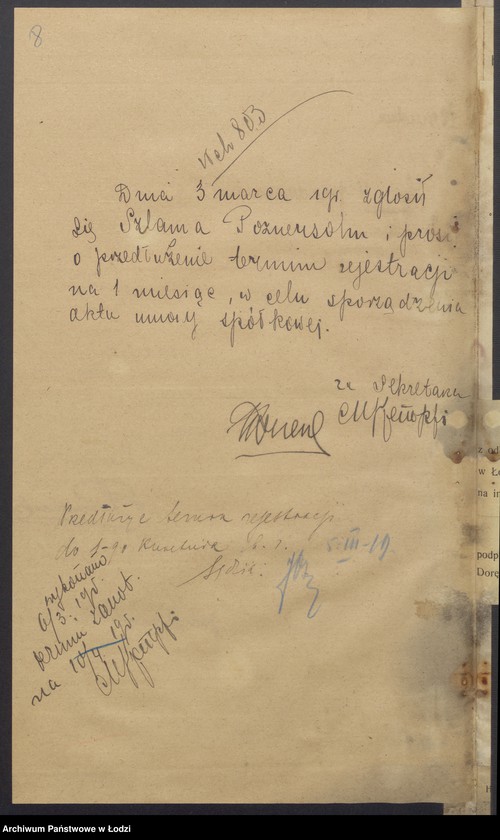 8
803
Dnia 3 marca zgłosił
się Szlama Poznersohn i prosi
o przedłużenie termin rejestracji
na 1 miesiąc, w celu sporządzenia
aktu umowy spółkowej.
za Sekretarza
Przedłużyć termin rejestracji
do 1-go kwietnia b. r. 5-III-19
Sędzia
wykonano
6/3. 19
na 10/4 19
z od
w Ło
na in
podp
Dorę
Archiwum Państwowe w Łodzi